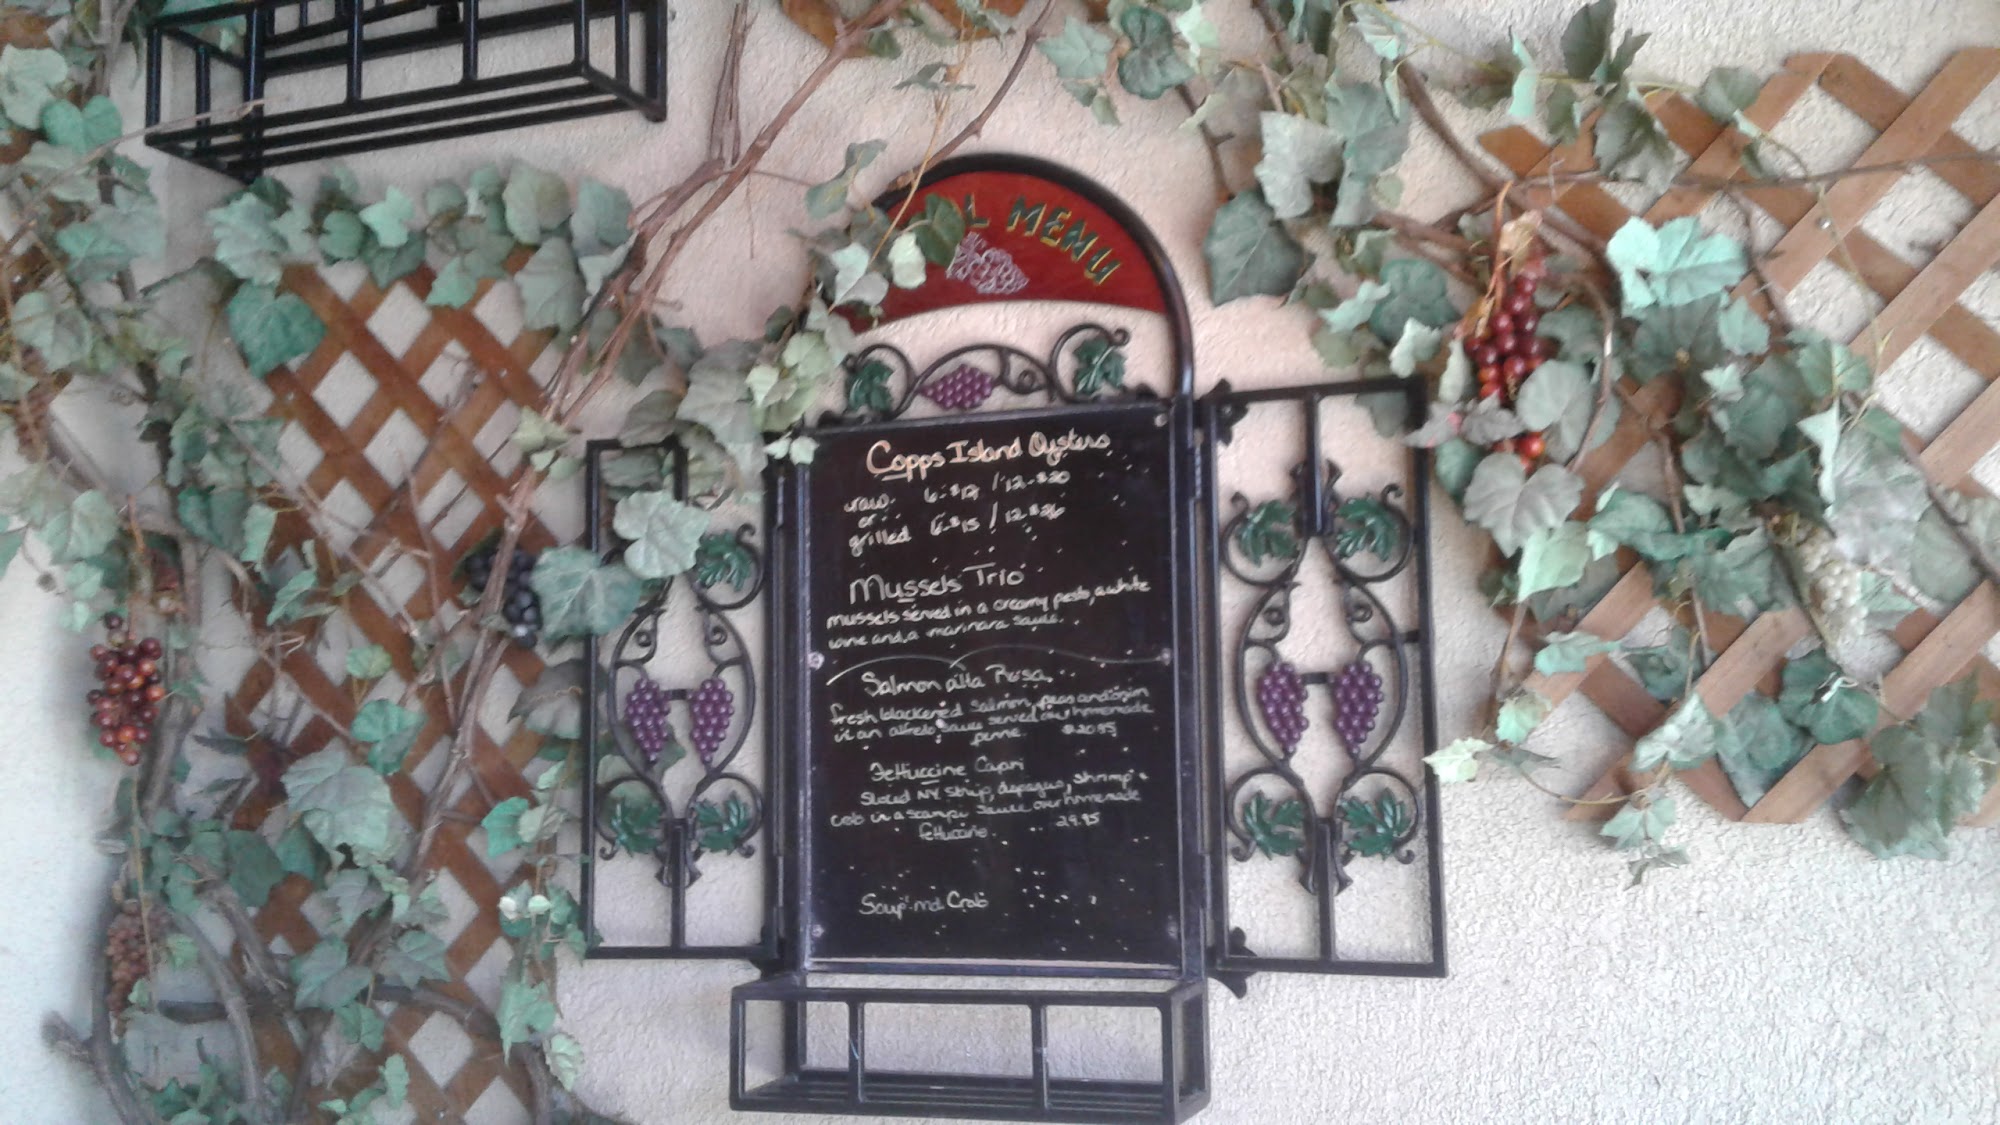 MENU
Copps Island Oysters
raw 6-$12 / 12-$20
or
grilled 6-$15 / 12-$26
Mussels Trio
mussels served in a creamy pesto, a white
wine and a marinara sauce.
Salmon alla Rosa
fresh blackened salmon, peas and onion
in an alfredo sauce served over homemade
penne. $20.95
Fettuccine Capri
Sliced NY Strip, asparagus, shrimp +
crab in a scampi sauce over homemade
fettuccine. 29.95
Soup: md. Crab